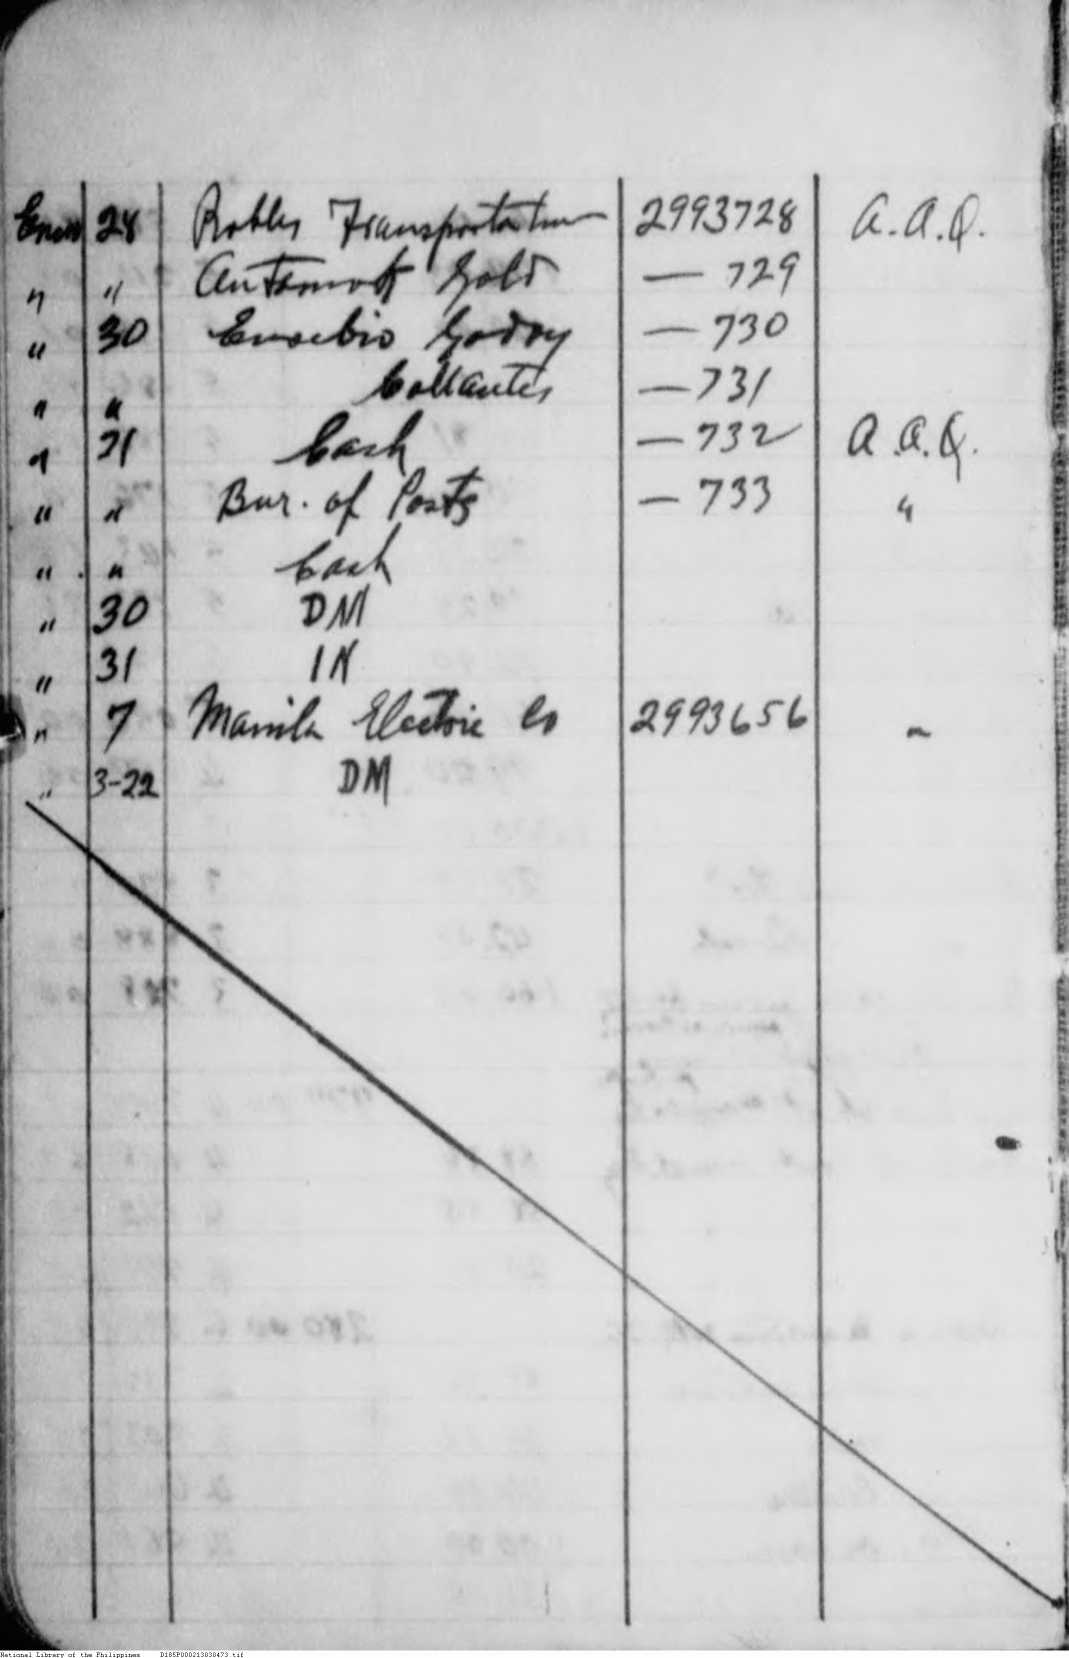 Enero 28 Robles Transportation 2993728 A.A.Q.
" " Antamok Gold — 729
" 30 Eusebio Godoy — 730
" " Collantes — 731
" 31 Cash — 732 A.A.Q.
" " Bur. of Posts — 733 "
" " Cash
" 30 DM
" 31 IN
" 7 Manila Electric Co 2993656 "
" 3-22 DM
National Library of the Philippines D185P000213030473.tif